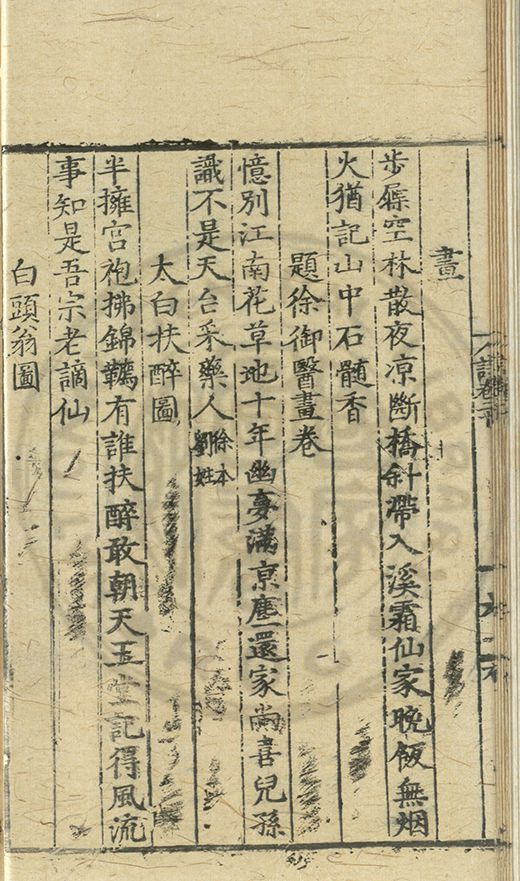 畫
步屧空林散夜凉斷橋斜帶入溪霜仙家晚飯無烟
火猶記山中石髓香
題徐御醫畫卷
憶別江南花草地十年幽夢滿京塵還家尚喜兒孫
識不是天台采藥人徐本劉姓
太白扶醉圖
半擁宮袍拂錦韉有誰扶醉敢朝天玉堂記得風流
事知是吾宗老謫仙
白頭翁圖